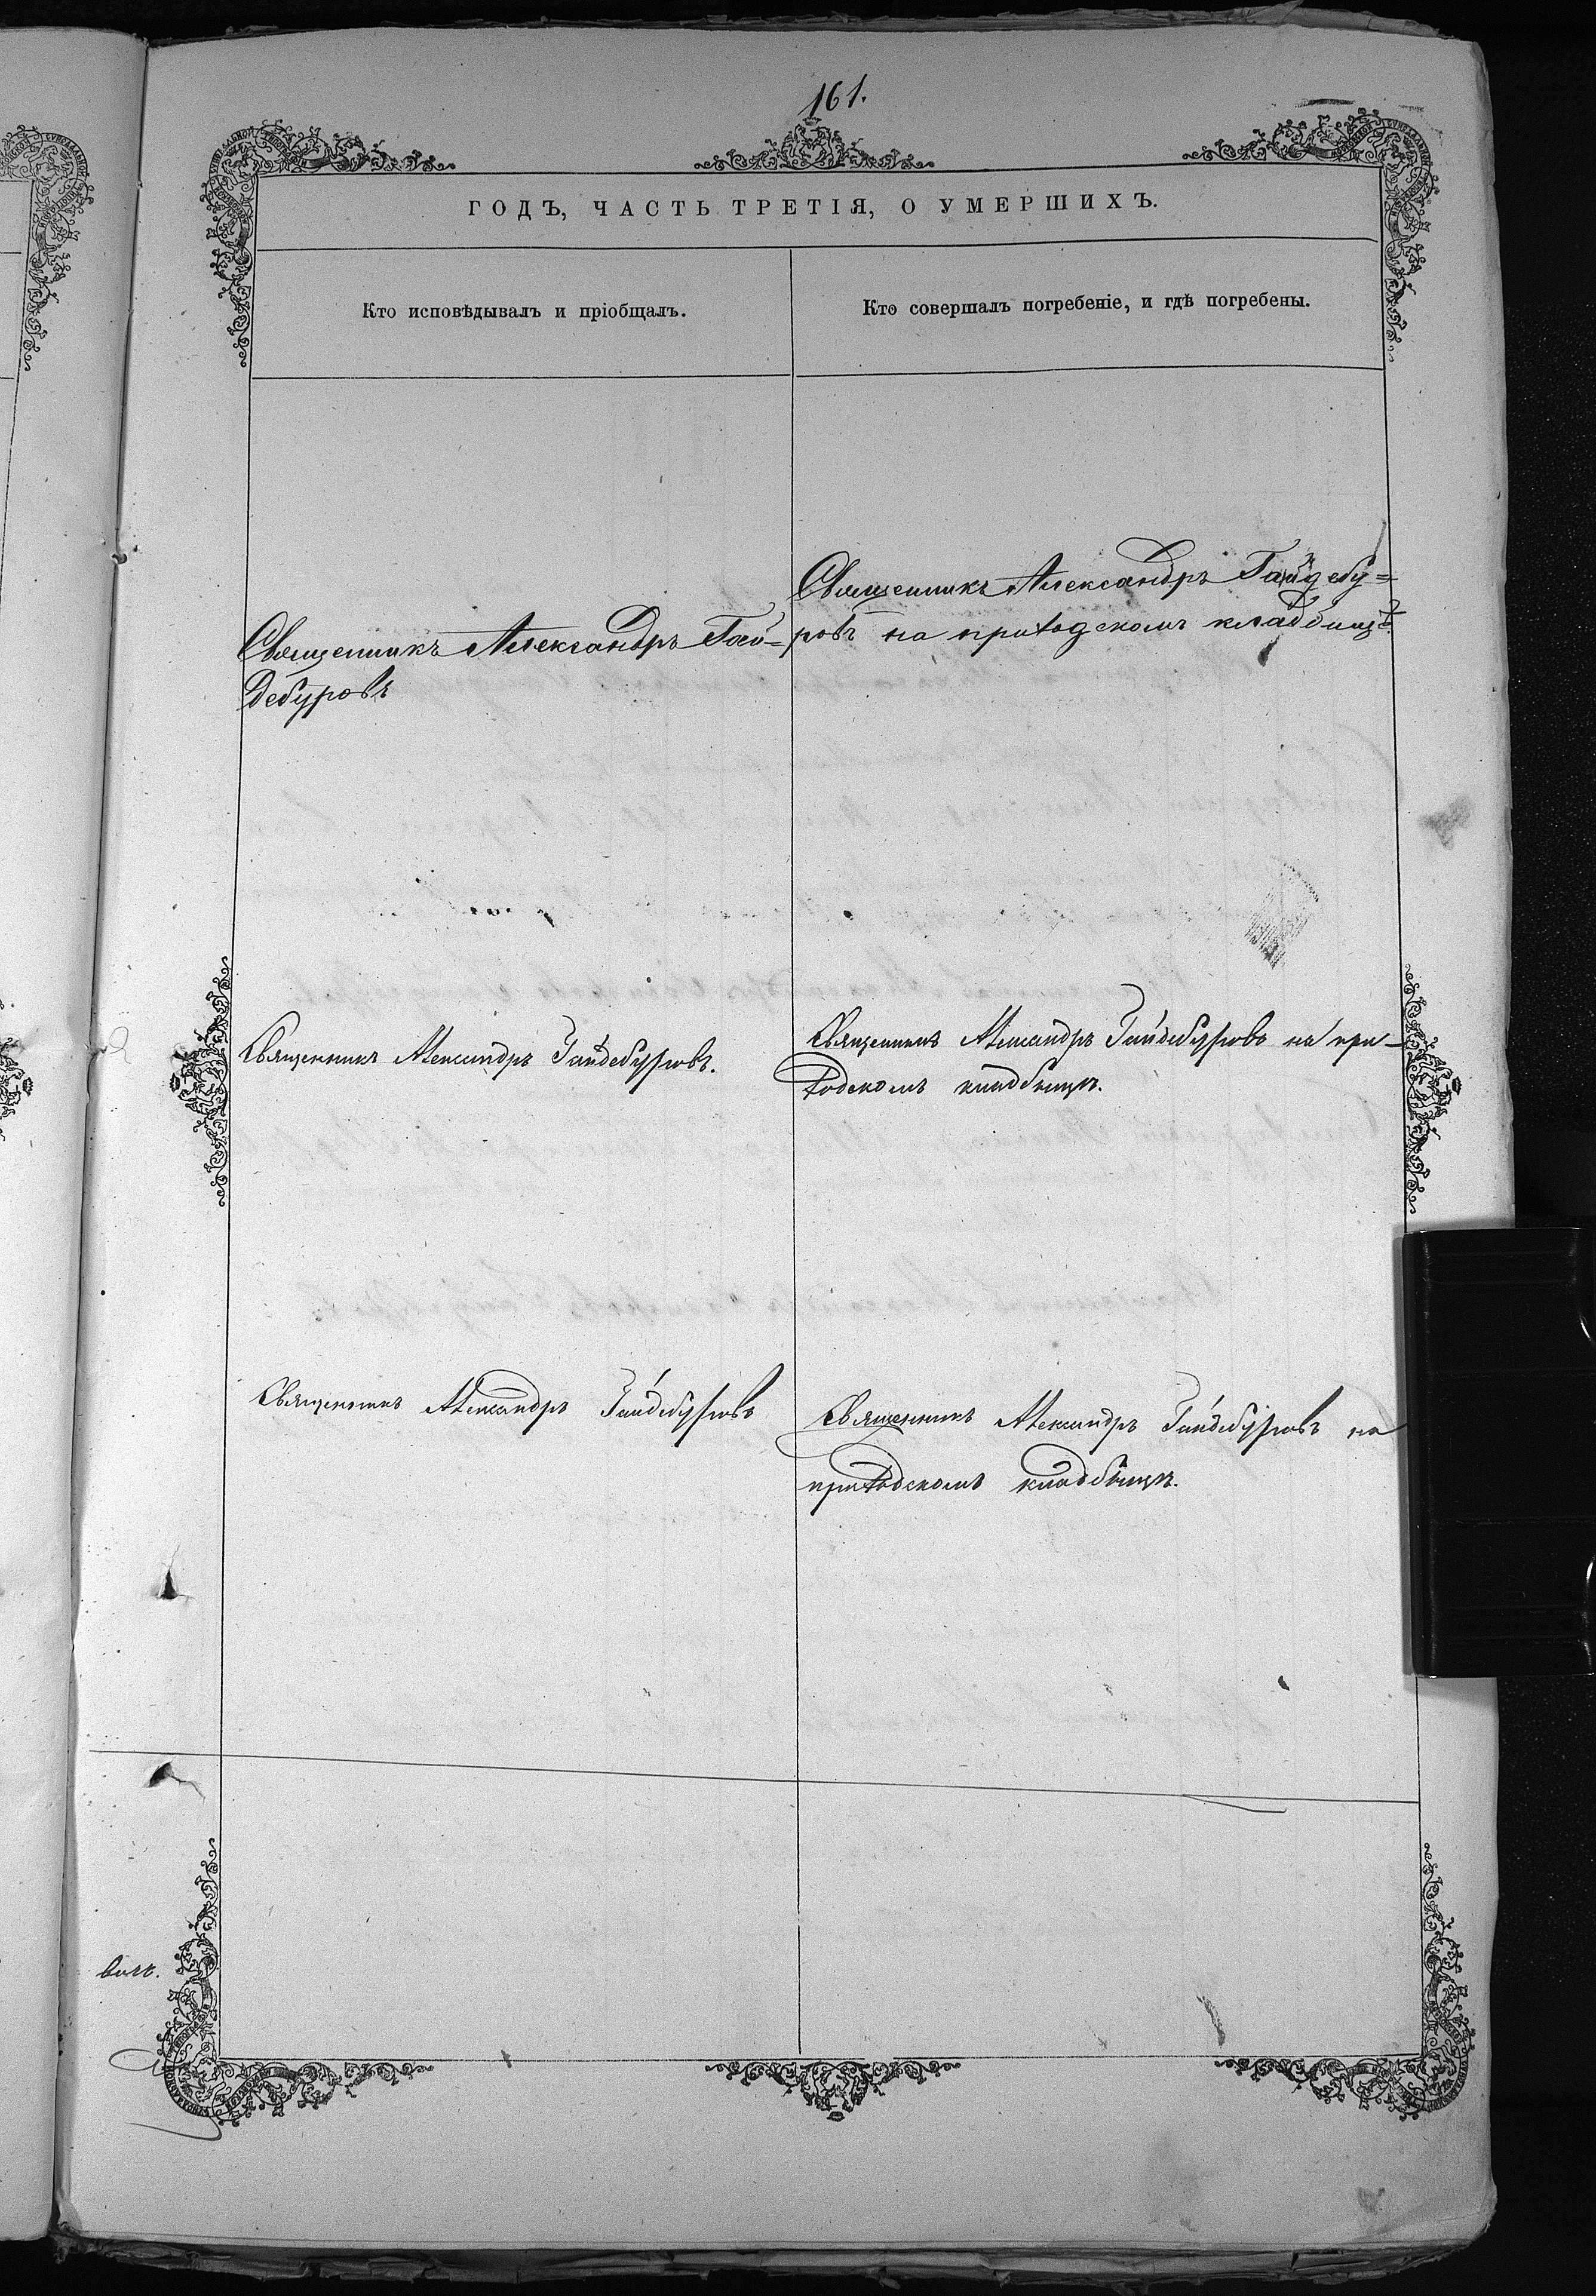 161.
ГОДЪ, ЧАСТЬ ТРЕТІЯ, О УМЕРШИХЪ.
Кто исповѣдывалъ и пріобщалъ.
Кто совершалъ погребеніе, и гдѣ погребены.
Священникъ Александръ Гай=
дебуровъ
Священникъ Александръ Гайдебу=
ровъ на приходскомъ кладбищѣ.
Священникъ Александръ Гайдебуровъ.
Священникъ Александръ Гайдебуровъ на при-
ходскомъ кладбищѣ.
Священникъ Александръ Гайдебуровъ
Священникъ Александръ Гайдебуровъ на
приходскомъ кладбищѣ.